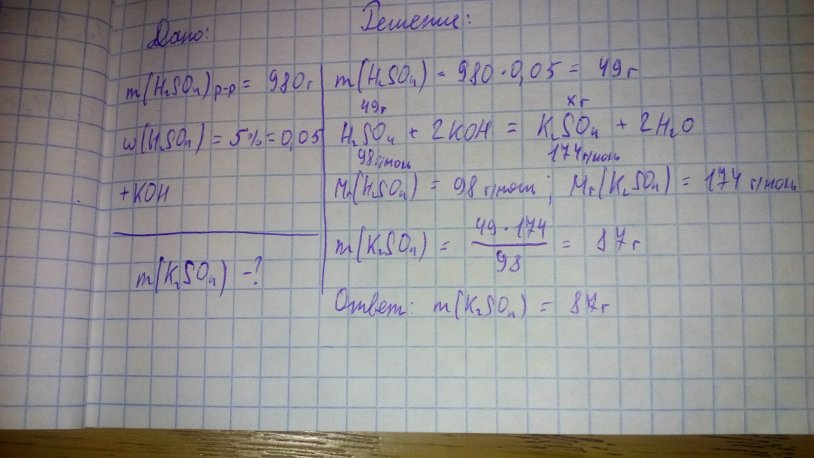 Дано:
m(H₂SO₄)р-р = 980г
w(H₂SO₄) = 5% = 0,05
+KOH
m(K₂SO₄) - ?
Решение:
m(H₂SO₄) = 980 · 0,05 = 49г
49г xг
H₂SO₄ + 2KOH = K₂SO₄ + 2H₂O
98г/моль 174г/моль
Mr(H₂SO₄) = 98 г/моль; Mr(K₂SO₄) = 174 г/моль
m(K₂SO₄) = 49 · 174 / 98 = 87г
Ответ: m(K₂SO₄) = 87г